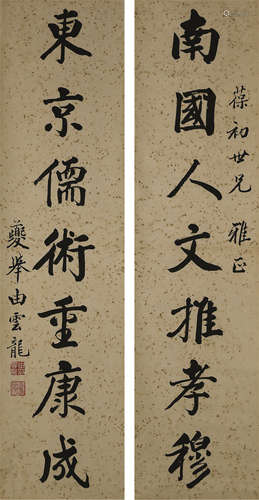 南國人文推孝穆
葆初世兄 雅正
東京儒術重康成
夔舉由雲龍